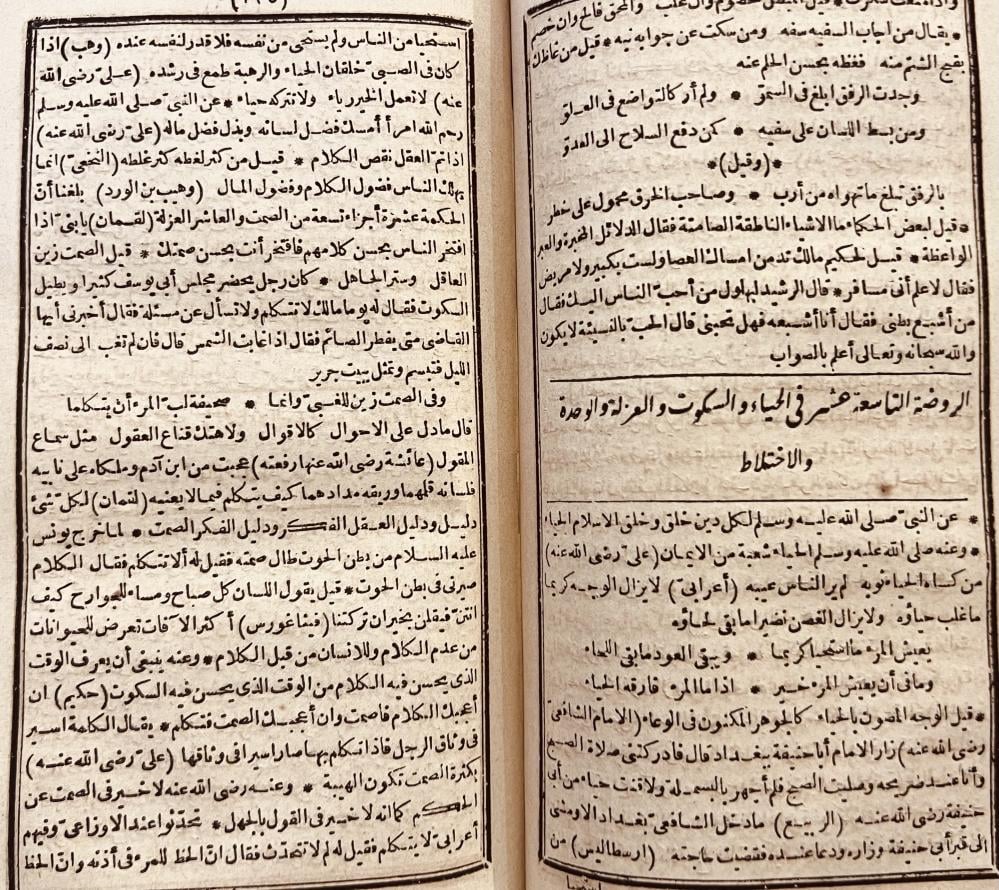 يقال من اجاب السفيه سفه ومن سكت عن جوابه نبه * قيل من غاظك
بقبح الشتم منه فغظه بحسن الحلم عنه
وجدت الرفق ابلغ فى السمو * ولم أر كالتواضع فى العلو
ومن بسط اللسان على سفيه * كمن دفع السلاح الى العدو
*(وقيل)*
بالرفق تبلغ ما تهواه من أرب * وصاحب الخرق محمول على خطر
* قيل لبعض الحكماء ما الاشياء الناطقة الصامتة فقال الدلائل المخبرة والعبر
الواعظة * قيل لحكيم مالك تدمن امساك العصا ولست بكبير ولا مريض
فقال لاعلم أنى مسافر * قال الرشيد لبهلول من أحب الناس اليك فقال
من أشبع بطنى فقال أنا أشبعه فهل تحبنى قال الحب بالنسيئة لا يكون
والله سبحانه وتعالى أعلم بالصواب
الروضة التاسعة عشر فى الحياء والسكوت والعزلة والوحدة
والاختلاط
* عن النبى صلى الله عليه وسلم لكل دين خلق وخلق الاسلام الحياء
* وعنه صلى الله عليه وسلم الحياء شعبة من الايمان (على رضى الله عنه)
من كساه الحياء ثوبه لم ير الناس عيبه (أعرابى) لا يزال الوجه كريما
ما غلب حياؤه ولا يزال الغصن نضيرا ما بقى لحاؤه
يعيش المرء ما استحيا كريما * ويبقى العود ما بقى اللحاء
وما فى أن يعيش المرء خير * اذا ما المرء فارقه الحياء
* قيل الوجه المصون بالحياء كالجوهر المكنون فى الوعاء (الامام الشافعى
رضى الله عنه) زار الامام أبا حنيفة ببغداد قال فادركتنى صلاة الصبح
وأنا عند ضريحه وصليت الصبح فلم أجهر بالبسملة ولا قنت حياء من أبى
حنيفة رضى الله عنه (الربيع) ما دخل الشافعى بغداد الا ومشى
الى قبر أبى حنيفة وزاره ودعا عنده فقضيت حاجته (ارسطاليس) من
استحيا من الناس ولم يستحى من نفسه فلا قدر لنفسه عنده (وهب) اذا
كان فى الصبى خلقان الحياء والرهبة طمع فى رشده (على رضى الله
عنه) لا تعمل الخير رياء ولا تتركه حياء * عن النبى صلى الله عليه وسلم
رحم الله امرأ أمسك فضل لسانه وبذل فضل ماله (على رضى الله عنه)
اذا تم العقل نقص الكلام * قيل من كثر لغطه كثر غلطه (النخعى) انما
يهلك الناس فضول الكلام وفضول المال (وهيب بن الورد) بلغنا أن
الحكمة عشرة أجزاء تسعة من الصمت والعاشر العزلة (لقمان) يا بنى اذا
افتخر الناس بحسن كلامهم فافتخر أنت بحسن صمتك * قيل الصمت زين
العاقل وستر الجاهل * كان رجل يحضر مجلس أبى يوسف كثيرا ويطيل
السكوت فقال له يوما مالك لا تتكلم ولا تسأل عن مسئلة فقال أخبرنى أيها
القاضى متى يفطر الصائم فقال اذا غابت الشمس قال فان لم تغب الى نصف
الليل فتبسم وتمثل ببيت جرير
وفى الصمت زين للغبى وانما * صحيفة لب المرء أن يتكلما
قال ما دل على الاحوال كالاقوال ولا هتك قناع العقول مثل سماع
المقول (عائشة رضى الله عنها رفعته) عجبت من ابن آدم وملكاه على نابيه
فلسانه قلمهما وريقه مدادهما كيف يتكلم فيما لا يعنيه (لقمان) لكل شئ
دليل ودليل العقل الفكر ودليل الفكر الصمت * لما خرج يونس
عليه السلام من بطن الحوت طال صمته فقيل له ألا تتكلم فقال الكلام
صيرنى فى بطن الحوت * قيل يقول اللسان كل صباح ومساء للجوارح كيف
انتن فيقلن بخير ان تركتنا (فيثاغورس) أكثر الآفات تعرض للحيوانات
من عدم الكلام وللانسان من قبل الكلام * وعنه ينبغى أن يعرف الوقت
الذى يحسن فيه الكلام من الوقت الذى يحسن فيه السكوت (حكيم) ان
أعجبك الكلام فاصمت وان أعجبك الصمت فتكلم * يقال الكلمة اسير
فى وثاق الرجل فاذا تكلم بها صار اسيرا فى وثاقها (على رضى الله عنه)
بكثرة الصمت تكون الهيبة * وعنه رضى الله عنه لا خير فى الصمت عن
الحكم كما انه لا خير فى القول بالجهل * تحدثوا عند الاوزاعى وفيهم
أعرابى لا يتكلم فقيل له لم لا تتحدث فقال ان الحظ للمرء فى أذنه وان الحظ